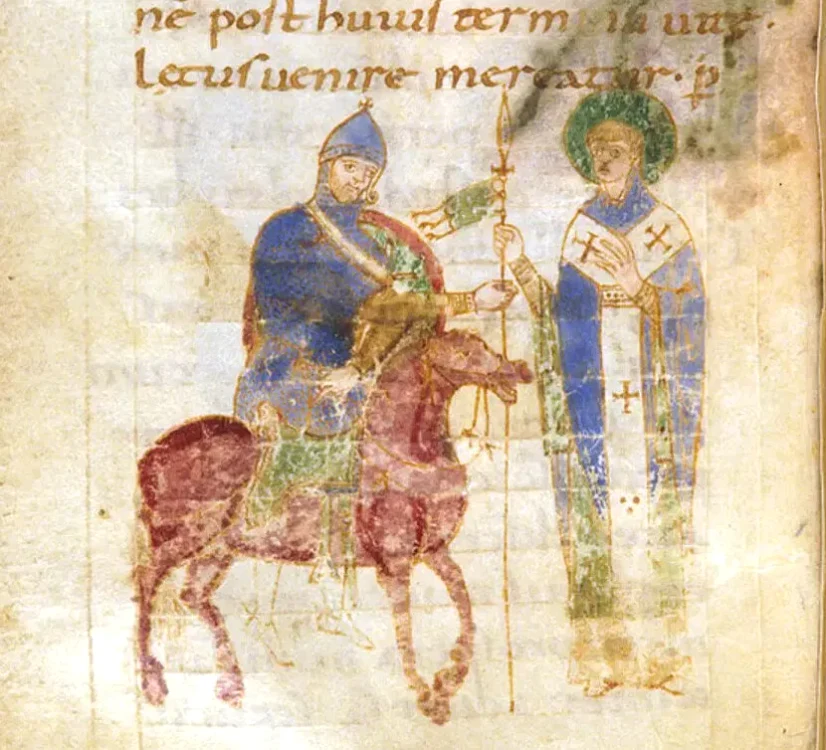 ne post huius uitę·
lętus uenire mereatur· p̄